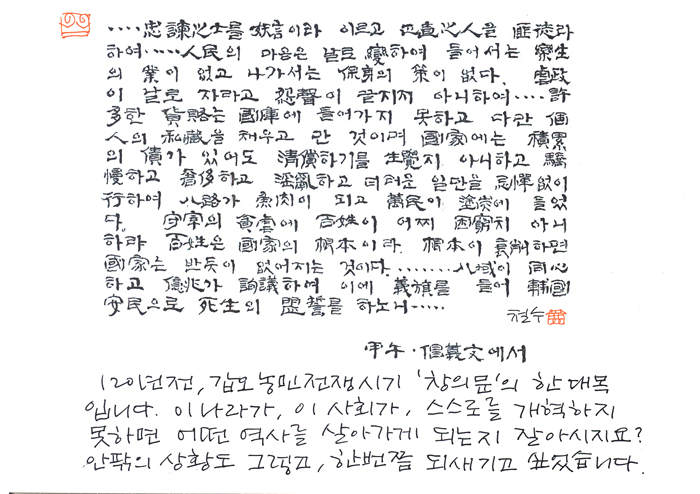 ····忠諫之士를 妖言이라 이르고 正直之人을 匪徒라
하여·····人民의 마음은 날로 變하여 들어서는 樂生
의 業이 없고 나가서는 保身의 策이 없다. 虐政
이 날로 자라고 怨聲이 끝지지 아니하여····許
多한 貨賂는 國庫에 들어가지 못하고 다만 個
人의 私藏을 채우고 만 것이며 國家에는 積累
의 債가 있어도 淸償하기를 生覺지 아니하고 驕
慢하고 奢侈하고 淫亂하고 더러운 일만을 忌憚없이
行하여 八路가 魚肉이 되고 萬民이 塗炭에 들었
다. 守宰의 貪虐에 百姓이 어찌 困窮치 아니
하랴 百姓은 國家의 根本이라. 根本이 衰削하면
國家는 반듯이 없어지는 것이다.········八域이 同心
하고 億兆가 詢議하여 이에 義旗를 들어 輔國
安民으로 死生의 盟誓를 하노니·····
철수
甲午·倡義文에서
120년전, 갑오농민전쟁시기 '창의문'의 한 대목
입니다. 이 나라가, 이 사회가, 스스로를 개혁하지
못하면 어떤 역사를 살아가게 되는지 잘아시지요?
안팎의 상황도 그렇고, 한번쯤 되새기고 싶었습니다.